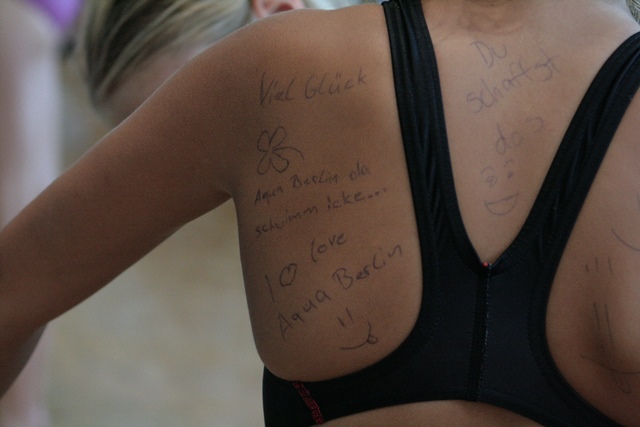 Viel Glück
Aqua Berlin ola
schwimm icke...
I love
Aqua Berlin
Du
schaffst
das